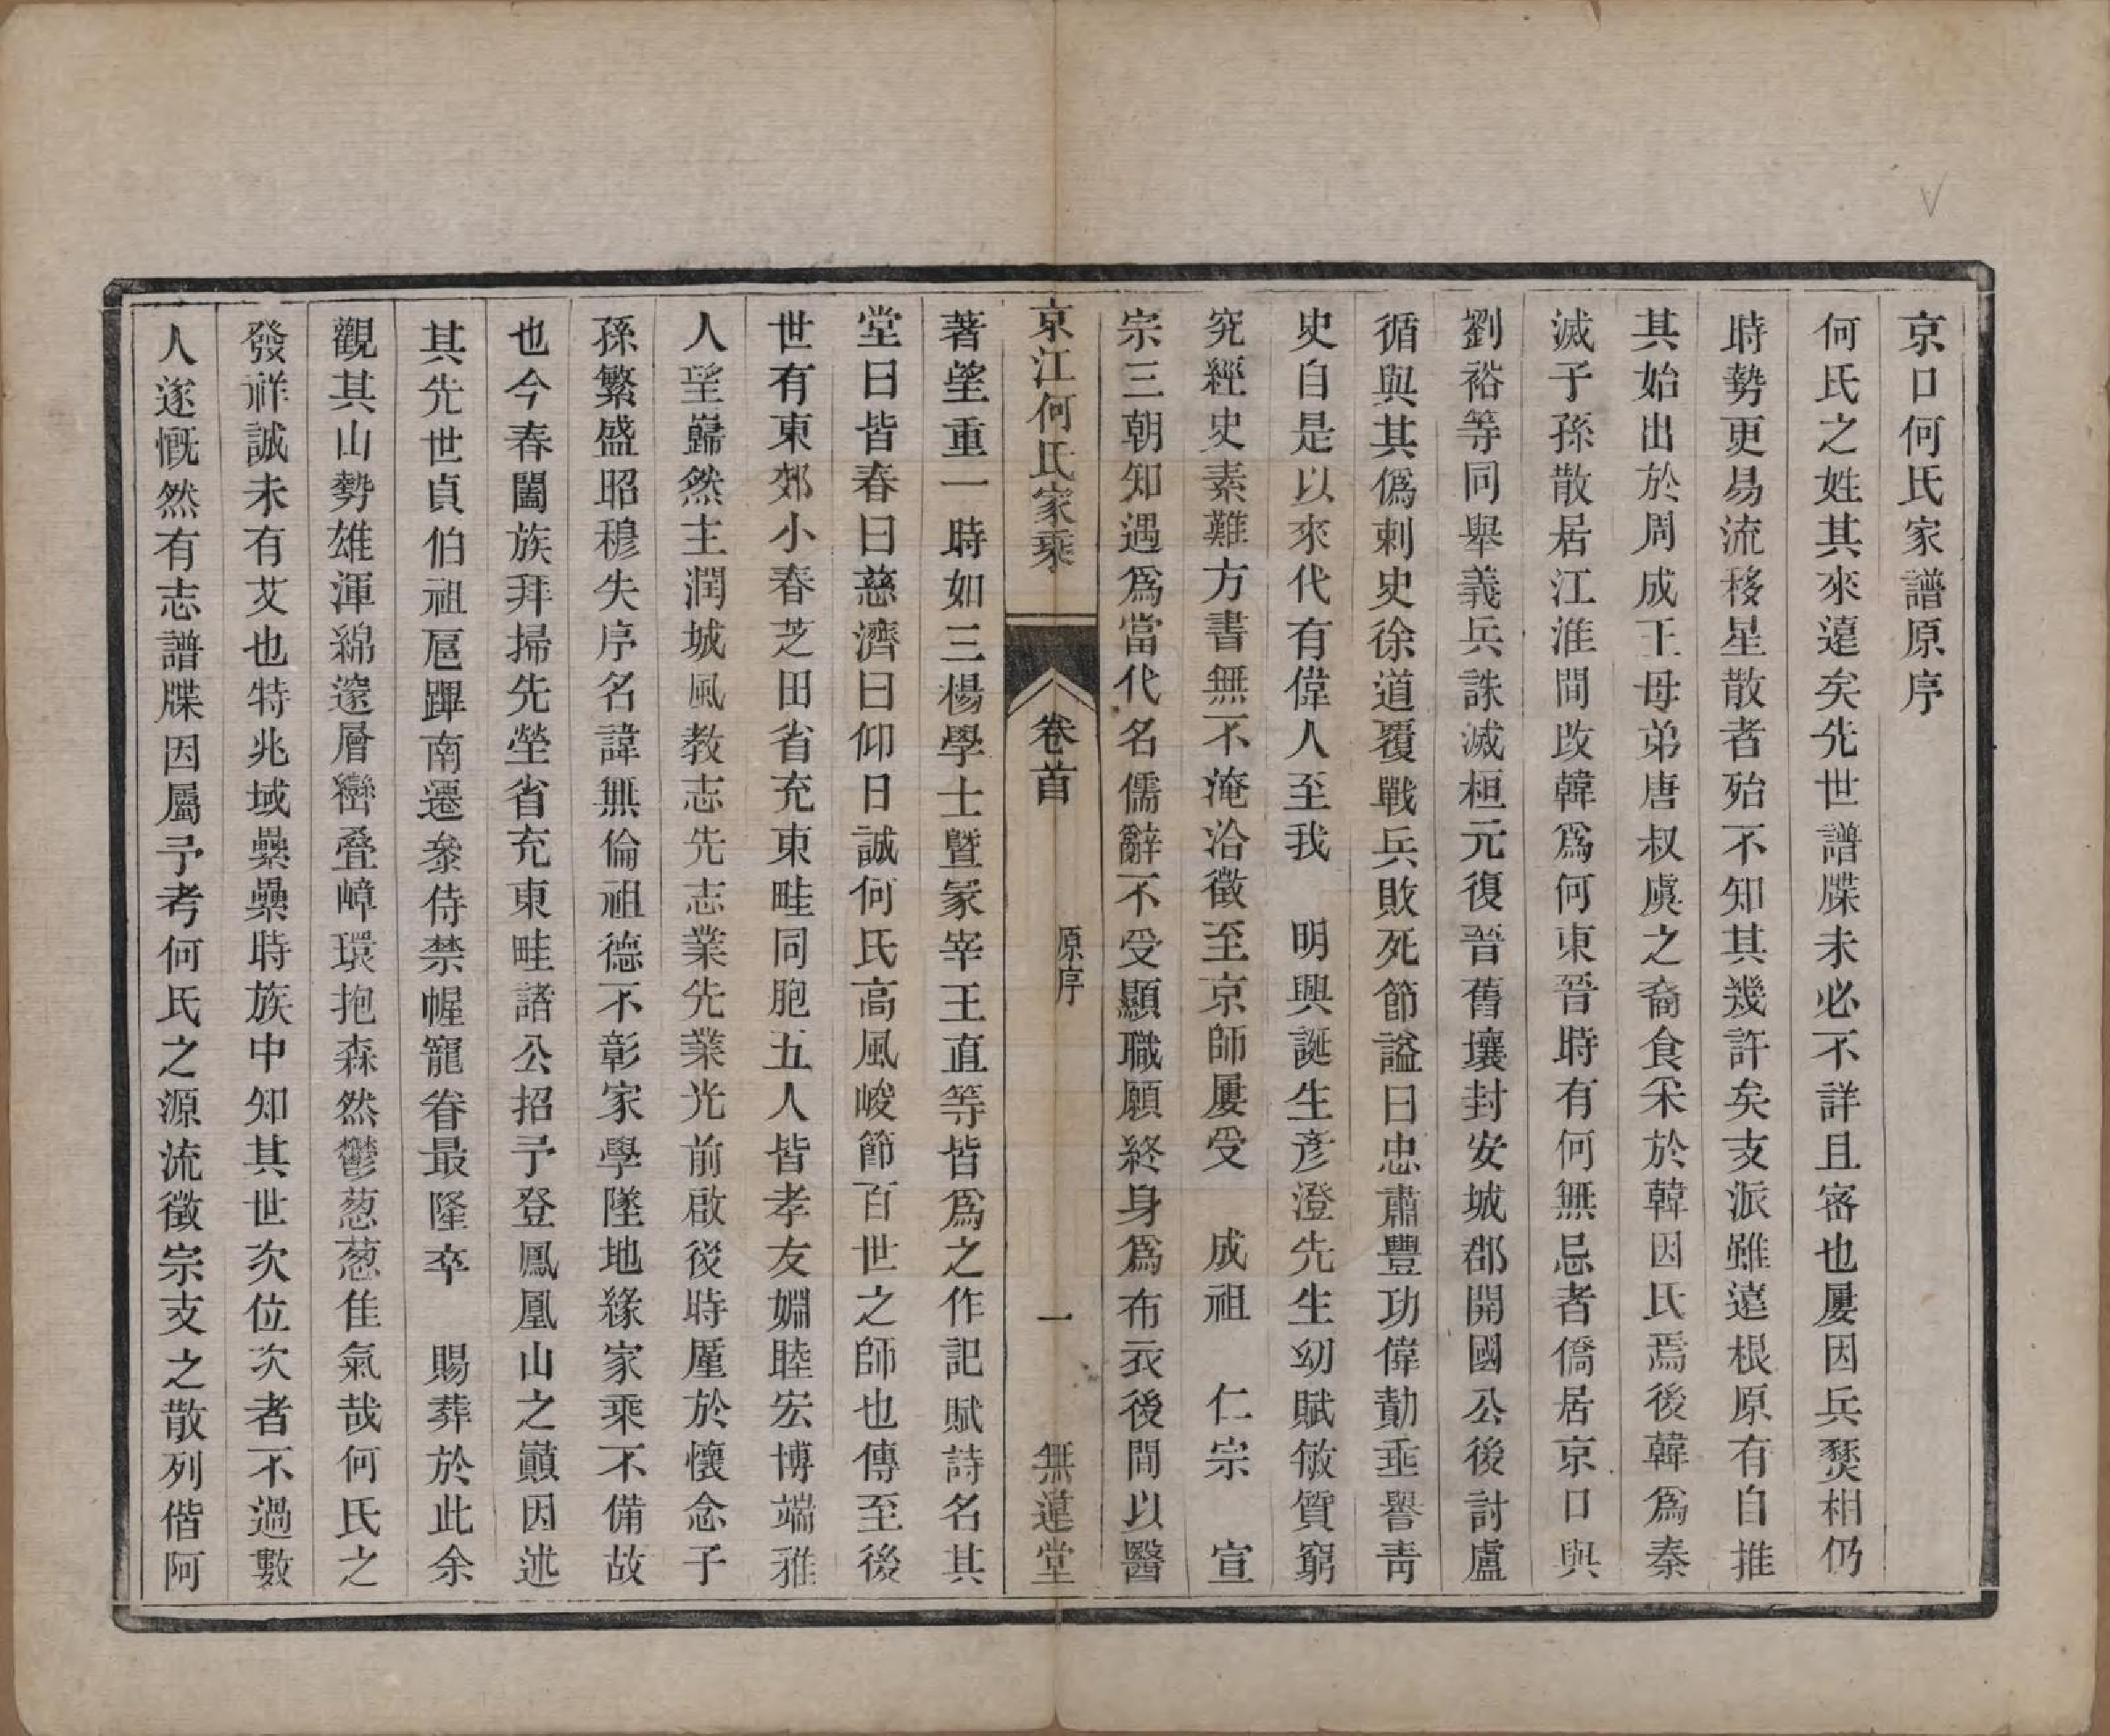 京口何氏家譜原序
何氏之姓其來遠矣先世譜牒未必不詳且審也屢因兵燹相仍
時勢更易流移星散者殆不知其幾許矣支派雖遠根原有自推
其始出於周成王母弟唐叔虞之裔食采於韓因氏焉後韓爲秦
滅子孫散居江淮間改韓爲何東晉時有何無忌者僑居京口與
劉裕等同舉義兵誅滅桓元復晉舊壤封安城郡開國公後討盧
循與其僞刺史徐道覆戰兵敗死節謚曰忠肅豐功偉勣垂譽青
史自是以來代有偉人至我　明興誕生彥澄先生幼賦敏質窮
究經史素難方書無不淹洽徵至京師屢受　成祖　仁宗　宣
宗三朝知遇爲當代名儒辭不受顯職願終身爲布衣後間以醫
京江何氏家乘　卷首　原序　一　無違堂
著望重一時如三楊學士曁冢宰王直等皆爲之作記賦詩名其
堂曰皆春曰慈濟曰仰日誠何氏高風峻節百世之師也傳至後
世有東郊小春芝田省充東畦同胞五人皆孝友婣睦宏博端雅
人望巋然主潤城風教志先志業先業光前啟後時厪於懷念子
孫繁盛昭穆失序名諱無倫祖德不彰家學墜地緣家乘不備故
也今春闔族拜掃先塋省充東畦諸公招予登鳳凰山之巔因述
其先世貞伯祖扈蹕南遷叅侍禁幄寵眷最隆卒　賜葬於此余
觀其山勢雄渾綿邃層巒疊嶂環抱森然鬱葱葱佳氣哉何氏之
發祥誠未有艾也特兆域纍纍時族中知其世次位次者不過數
人遂慨然有志譜牒因屬予考何氏之源流徵宗支之散列偕阿